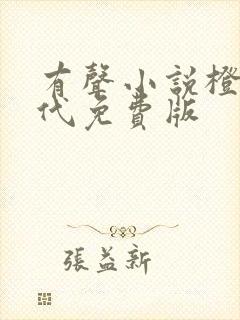 有聲小說橙
代免費版
張益新